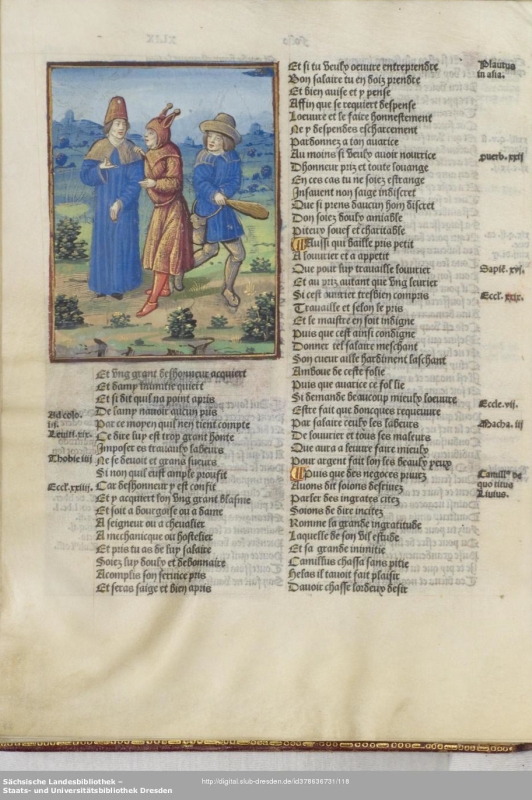 Et vng grant deshonneur acquiert
Et damp inimitie quiert
Et si dit quil na point apris
De lamp namoir aucun pris
Par ce moyen quil nen tient compte
Ce dire luy est trop grant honte
Imposer es trauaulx labeurs
Ne se deuoit et grans sueurs
Si non quil eust ample prouffit
Car deshonneur y est confit
Et y acquiert son vng grant blasme
Et soit a bourgoise ou a dame
A seigneur ou a cheualier
A mechanicque ou hostelier
Et pris tu as de luy salaire
Soiez luy doulx et debonnaire
Acomplis son seruice pris
Et seras saige et bien apris
Ad colo.
iii.
Leuiti. xix.
Thobie iiii
Eccl. xxxiiii.
Et si tu veulx oeuure entreprendre
Bon salaire tu en doiz prendre
Et bien auise et y pense
Affin que se requiert despense
Loeuure et le faire honnestement
Ne y despendes escharcement
Pardonnez a ton auarice
Au moins si veulx auoir nourrice
Dhonneur priz et toute louange
En ces cas tu ne soiez estrange
Insauent non saige indiscret
Que si prens daucun hom discret
Don soiez doulx amiable
Piteux souef et charitable
Aussi qui baille pris petit
A louurier et a appetit
Que pour luy trauaille louurier
Et au priz autant que vng leurier
Si cest ouurier tresbien compris
Trauaille et selon le pris
Et le maistre en soit indigne
Puis que cest ainsi condigne
Donner tel salaire meschant
Son cueur aille hardiment laschant
Amboue de ceste folie
Puis que auarice ce fol lie
Si demande beaucoup mieulx loeuure
Estre fait que doncques requeuure
Par salaire ceulx les labeurs
De louurier et tous ses maleurs
Que aura a leuure faire mieulx
Pour argent fait lon les beaulx yeux
Puis que des negoces priuez
Auons dit soions desriuez
Parler des ingrates citez
Soions de dire incitez
Romme sa grande ingratitude
Laquelle de son vil estude
Et sa grande inimitie
Camillus chassa sans pitie
Helas il lauoit fait plaisir
Dauoir chasse lordeux desir
Plautus
in asia.
puerb. xxii
Sapiē. xvi.
Eccl. xxix.
Eccle. vii.
Macha. iii
Camillꝰ de
quo titus
Liuius.
Sächsische Landesbibliothek –
Staats- und Universitätsbibliothek Dresden
http://digital.slub-dresden.de/id378636731/118